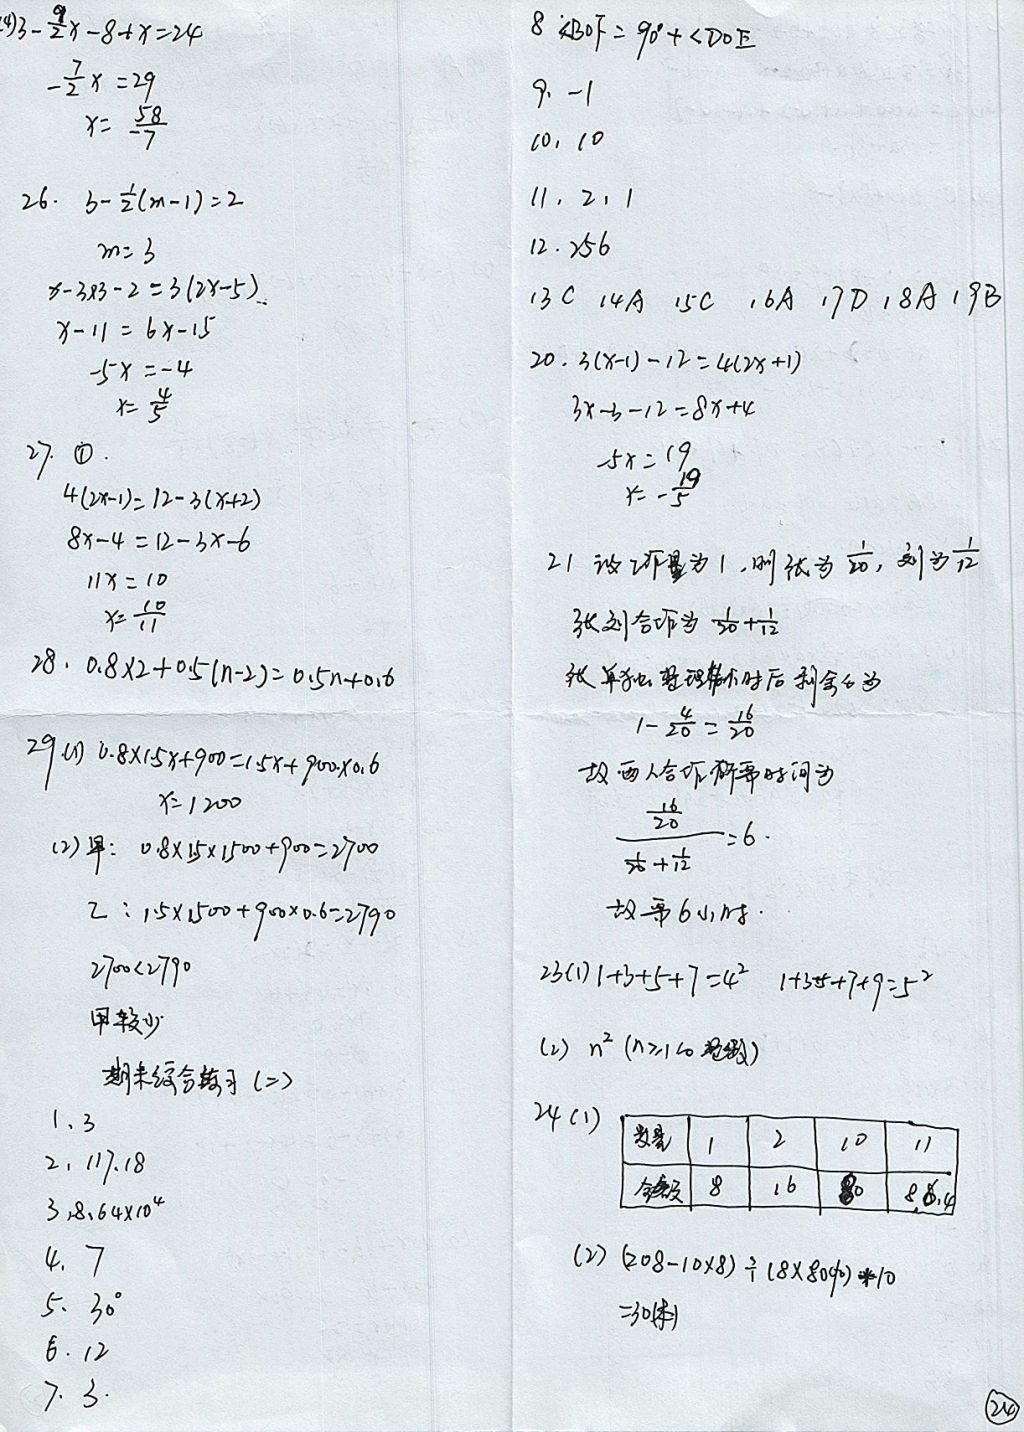 (4) 3-9/2x-8+x=24
-7/2x=29
x=58/-7
26. 3-1/2(m-1)=2
m=3
x-3×3-2=3(2x-5)
x-11=6x-15
-5x=-4
x=4/5
27. ①.
4(2x-1)=12-3(x+2)
8x-4=12-3x-6
11x=10
x=10/11
28. 0.8×2+0.5(n-2)=0.5n+0.6
29.(1) 0.8×1.5x+900=1.5x+900×0.6
x=1200
(2)甲: 0.8×1.5×1500+900=2700
乙: 1.5×1500+900×0.6=2790
2700<2790
甲较少
期末综合练习(二)
1、3
2、117.18
3、8.64×10⁴
4、7
5、30°
6.12
7.3.
8 ∠BOF=90°+∠DOE
9、-1
10、10
11、2、1
12.256
13C 14A 15C 16A 17D 18A 19B
20. 3(x-1)-12=4(2x+1)
3x-3-12=8x+4
-5x=19
x=-19/5
21 设工作量为1,则张为1/20,刘为1/12
张刘合作为1/20+1/12
张单独整理4小时后剩余为
1-4/20=16/20
故两人合作所需时间为
(16/20)/(1/20+1/12)=6.
故需6小时.
23(1) 1+3+5+7=4² 1+3+5+7+9=5²
(2) n²(n≥1的整数)
24(1)
数量 1 2 10 11
金额 8 16 80 86.4
(2) (208-10×8)÷(8×80%)+10
=30(本)
24